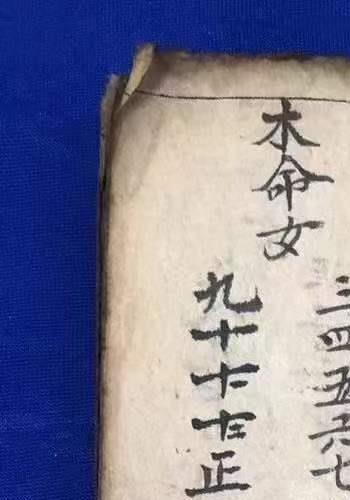 木命女
三四五六七
九十十一十二正